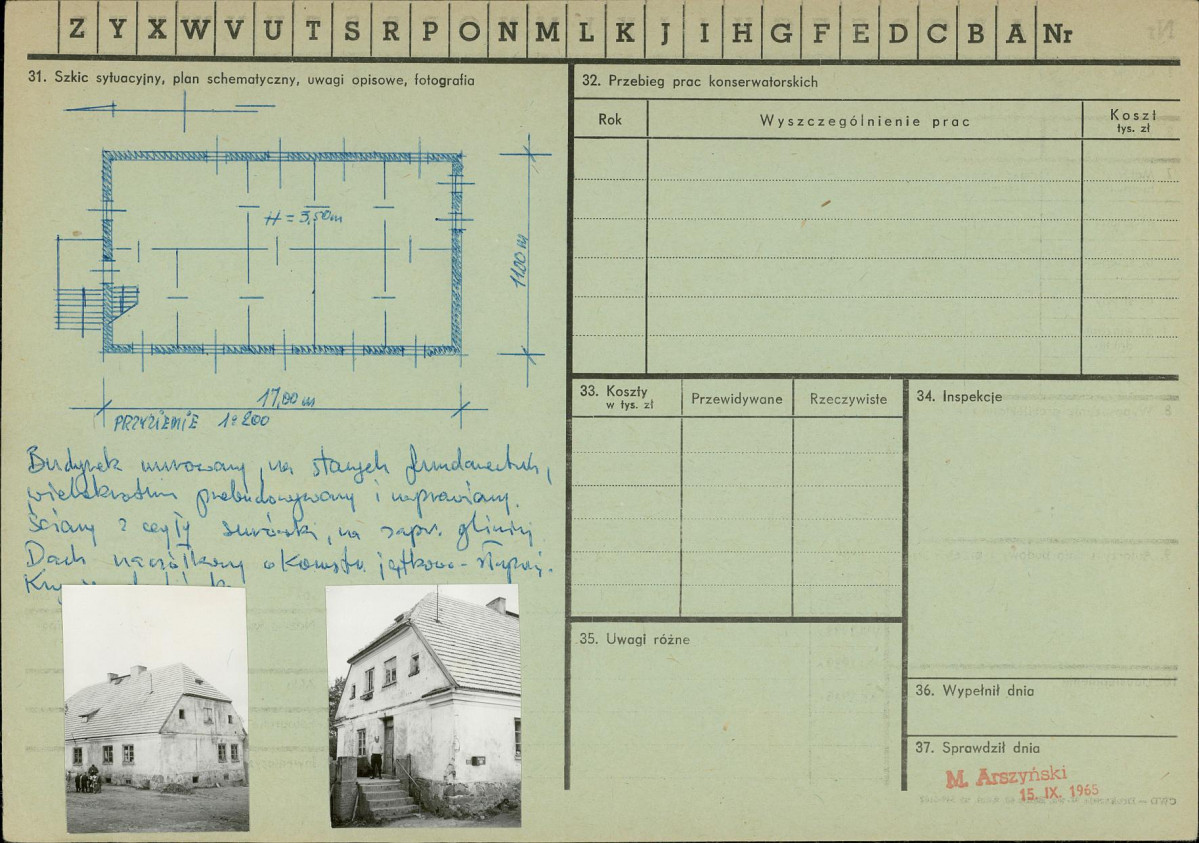 Z Y X W V U T S R P O N M L K J I H G F E D C B A Nr
31. Szkic sytuacyjny, plan schematyczny, uwagi opisowe, fotografia
H = 3,50 m
11,00 m
17,00 m
PRZYZIEMIE 1:200
Budynek murowany, na starych fundamentach,
wielokrotnie przebudowywany i naprawiany.
Ściany z cegły surówki, na zapr. glinianej.
Dach naczółkowy o konstr. jętkowo-stolcowej.
32. Przebieg prac konserwatorskich
Rok Wyszczególnienie prac Koszt
tys. zł
33. Koszty
w tys. zł
Przewidywane Rzeczywiste
34. Inspekcje
35. Uwagi różne
36. Wypełnił dnia
37. Sprawdził dnia
M. Arszyński
15. IX. 1965